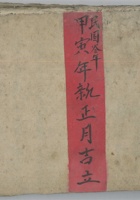 民國叁年
甲寅年新正月吉立